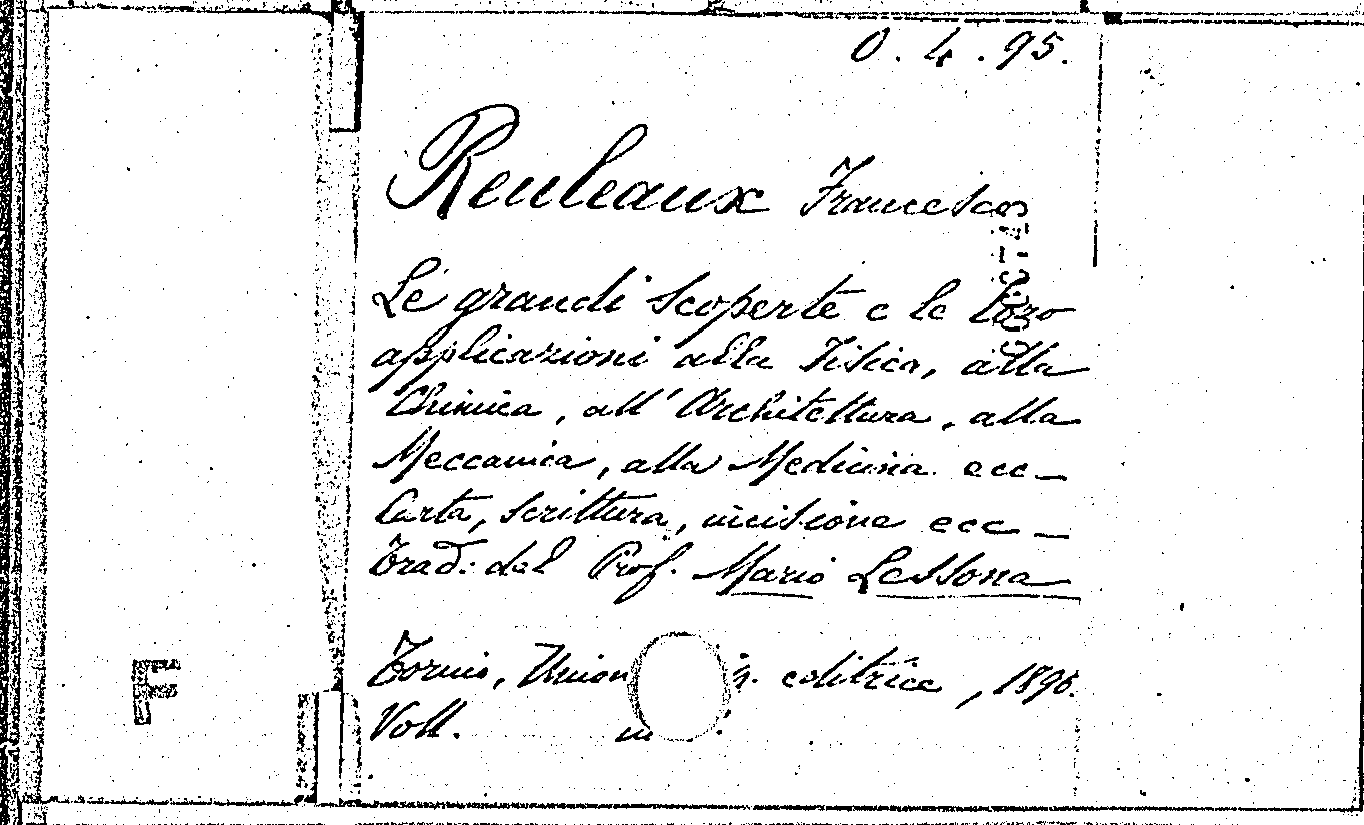 O. 4. 95.
Reuleaux Francesco
Le grandi scoperte e le loro
applicazioni alla Fisica, alla
Chimica, all' Architettura, alla
Meccanica, alla Medicina ecc -
Carta, scrittura, incisione ecc -
Trad. dal Prof. Mario Lessona
Torino, Union editrice, 1890.
F
Voll. in